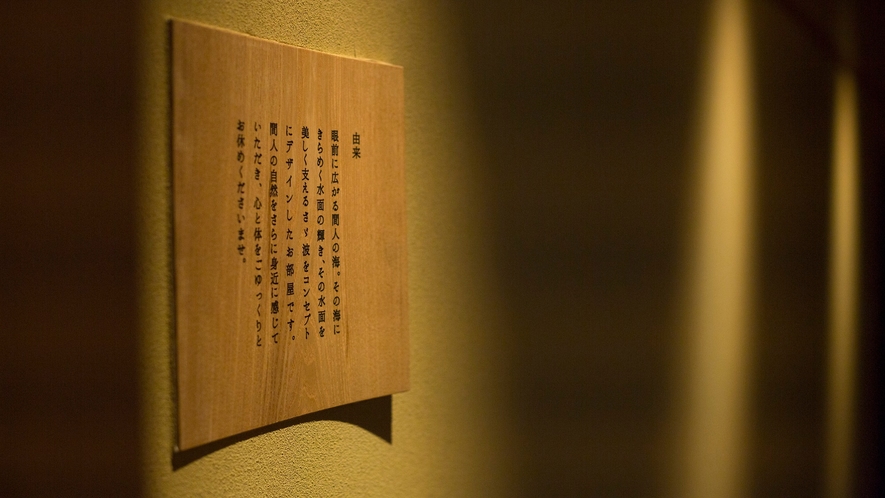 由来
眼前に広がる間人の海。その海に
きらめく水面の輝き、その水面を
美しく支えるさゞ波をコンセプト
にデザインしたお部屋です。
間人の自然をさらに身近に感じて
いただき、心と体をごゆっくりと
お休めくださいませ。